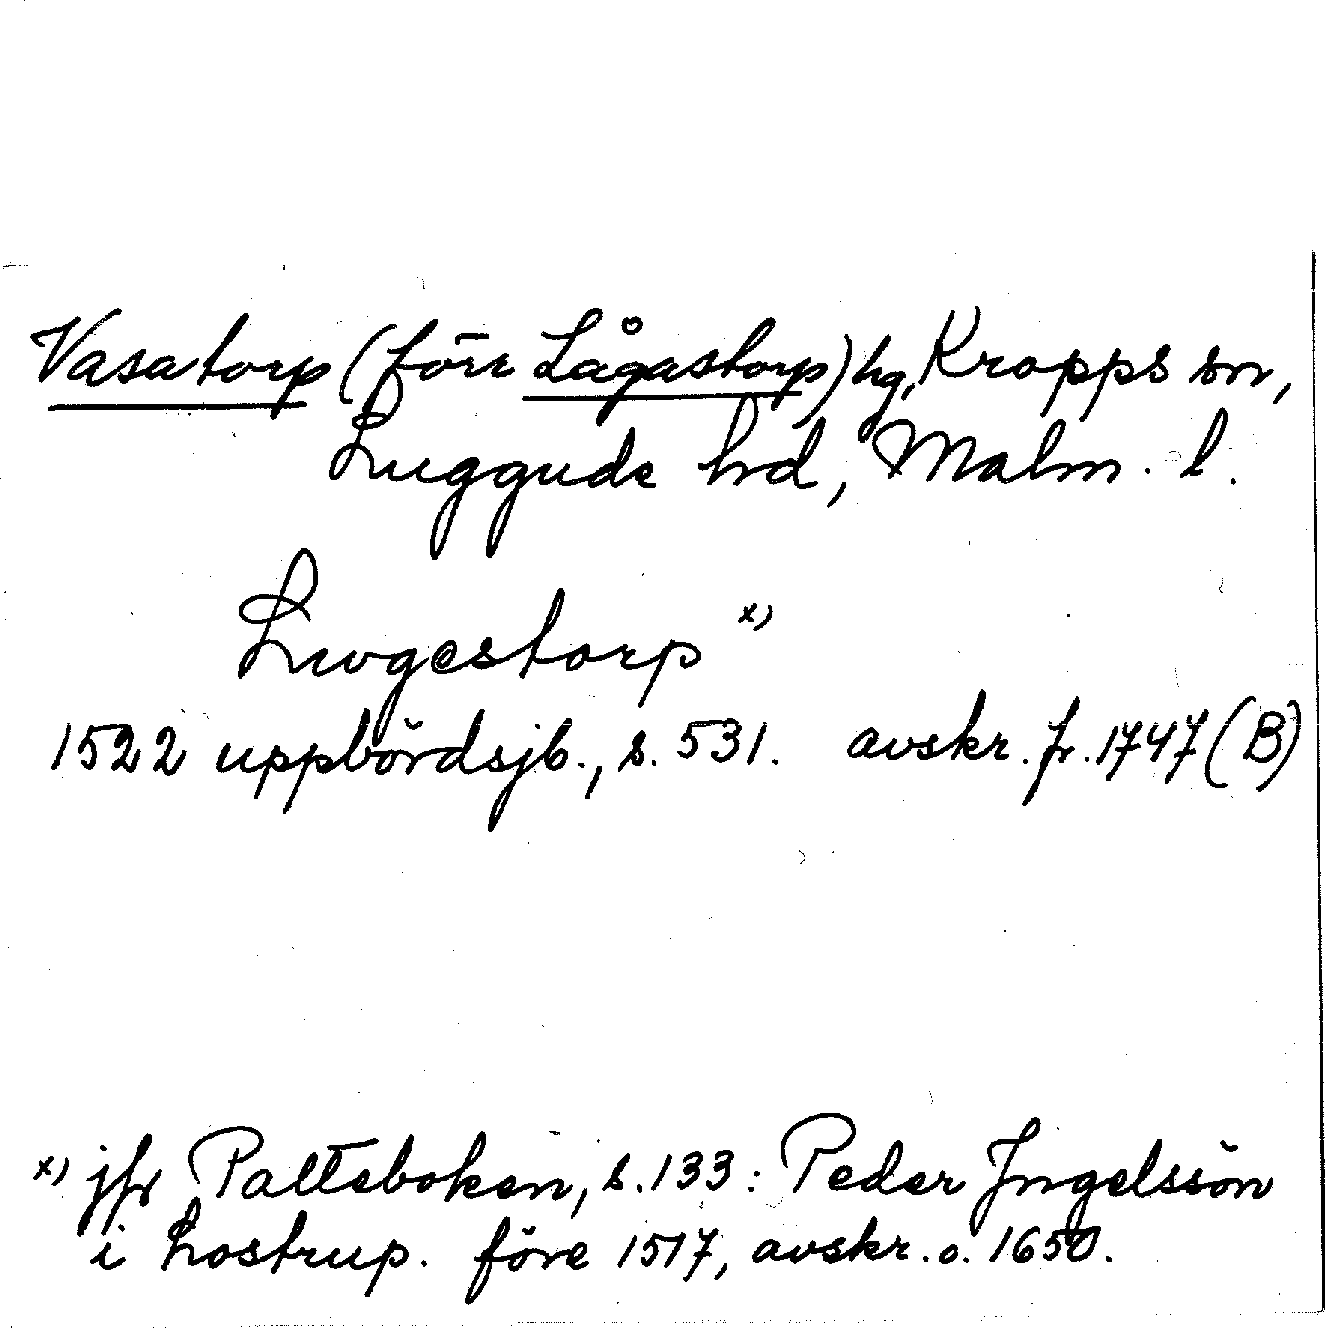 Vasatorp (förr Lågastorp) hg, Kropps sn,
Luggude hrd, Malm. l.
Luvgestorp x)
1522 uppbördsjb., s. 531. avskr. fr. 1747 (B)
x) jfr Palteboken, s. 133: Peder Ingelssön
i Lostrup. före 1517, avskr. o. 1650.